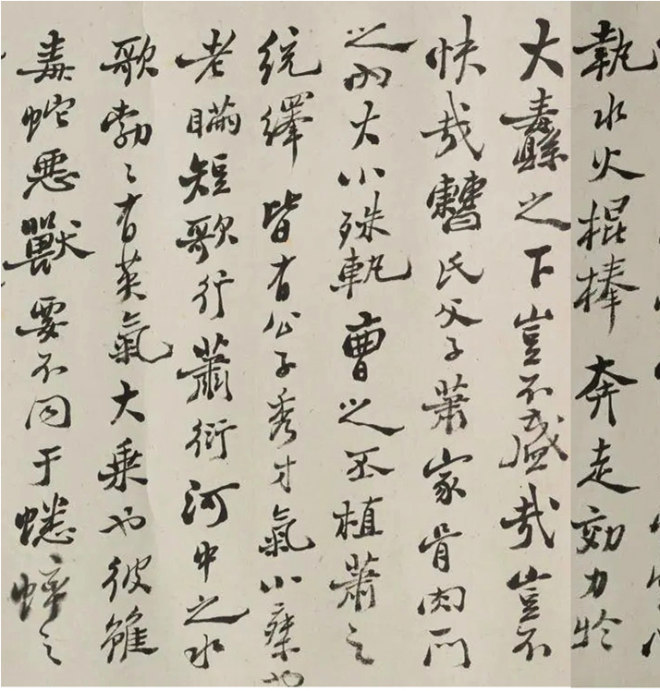 執水火棍棒奔走効力於
大纛之下豈不盛哉豈不
快哉曹氏父子蕭家骨肉
之而大小殊軌曹之丕植蕭之
統繹皆有公子秀才氣小乘也
老瞞短歌行蕭衍河中之水
歌勃々有英氣大乘也彼雖
毒蛇惡獸要不同于蟋蟀之